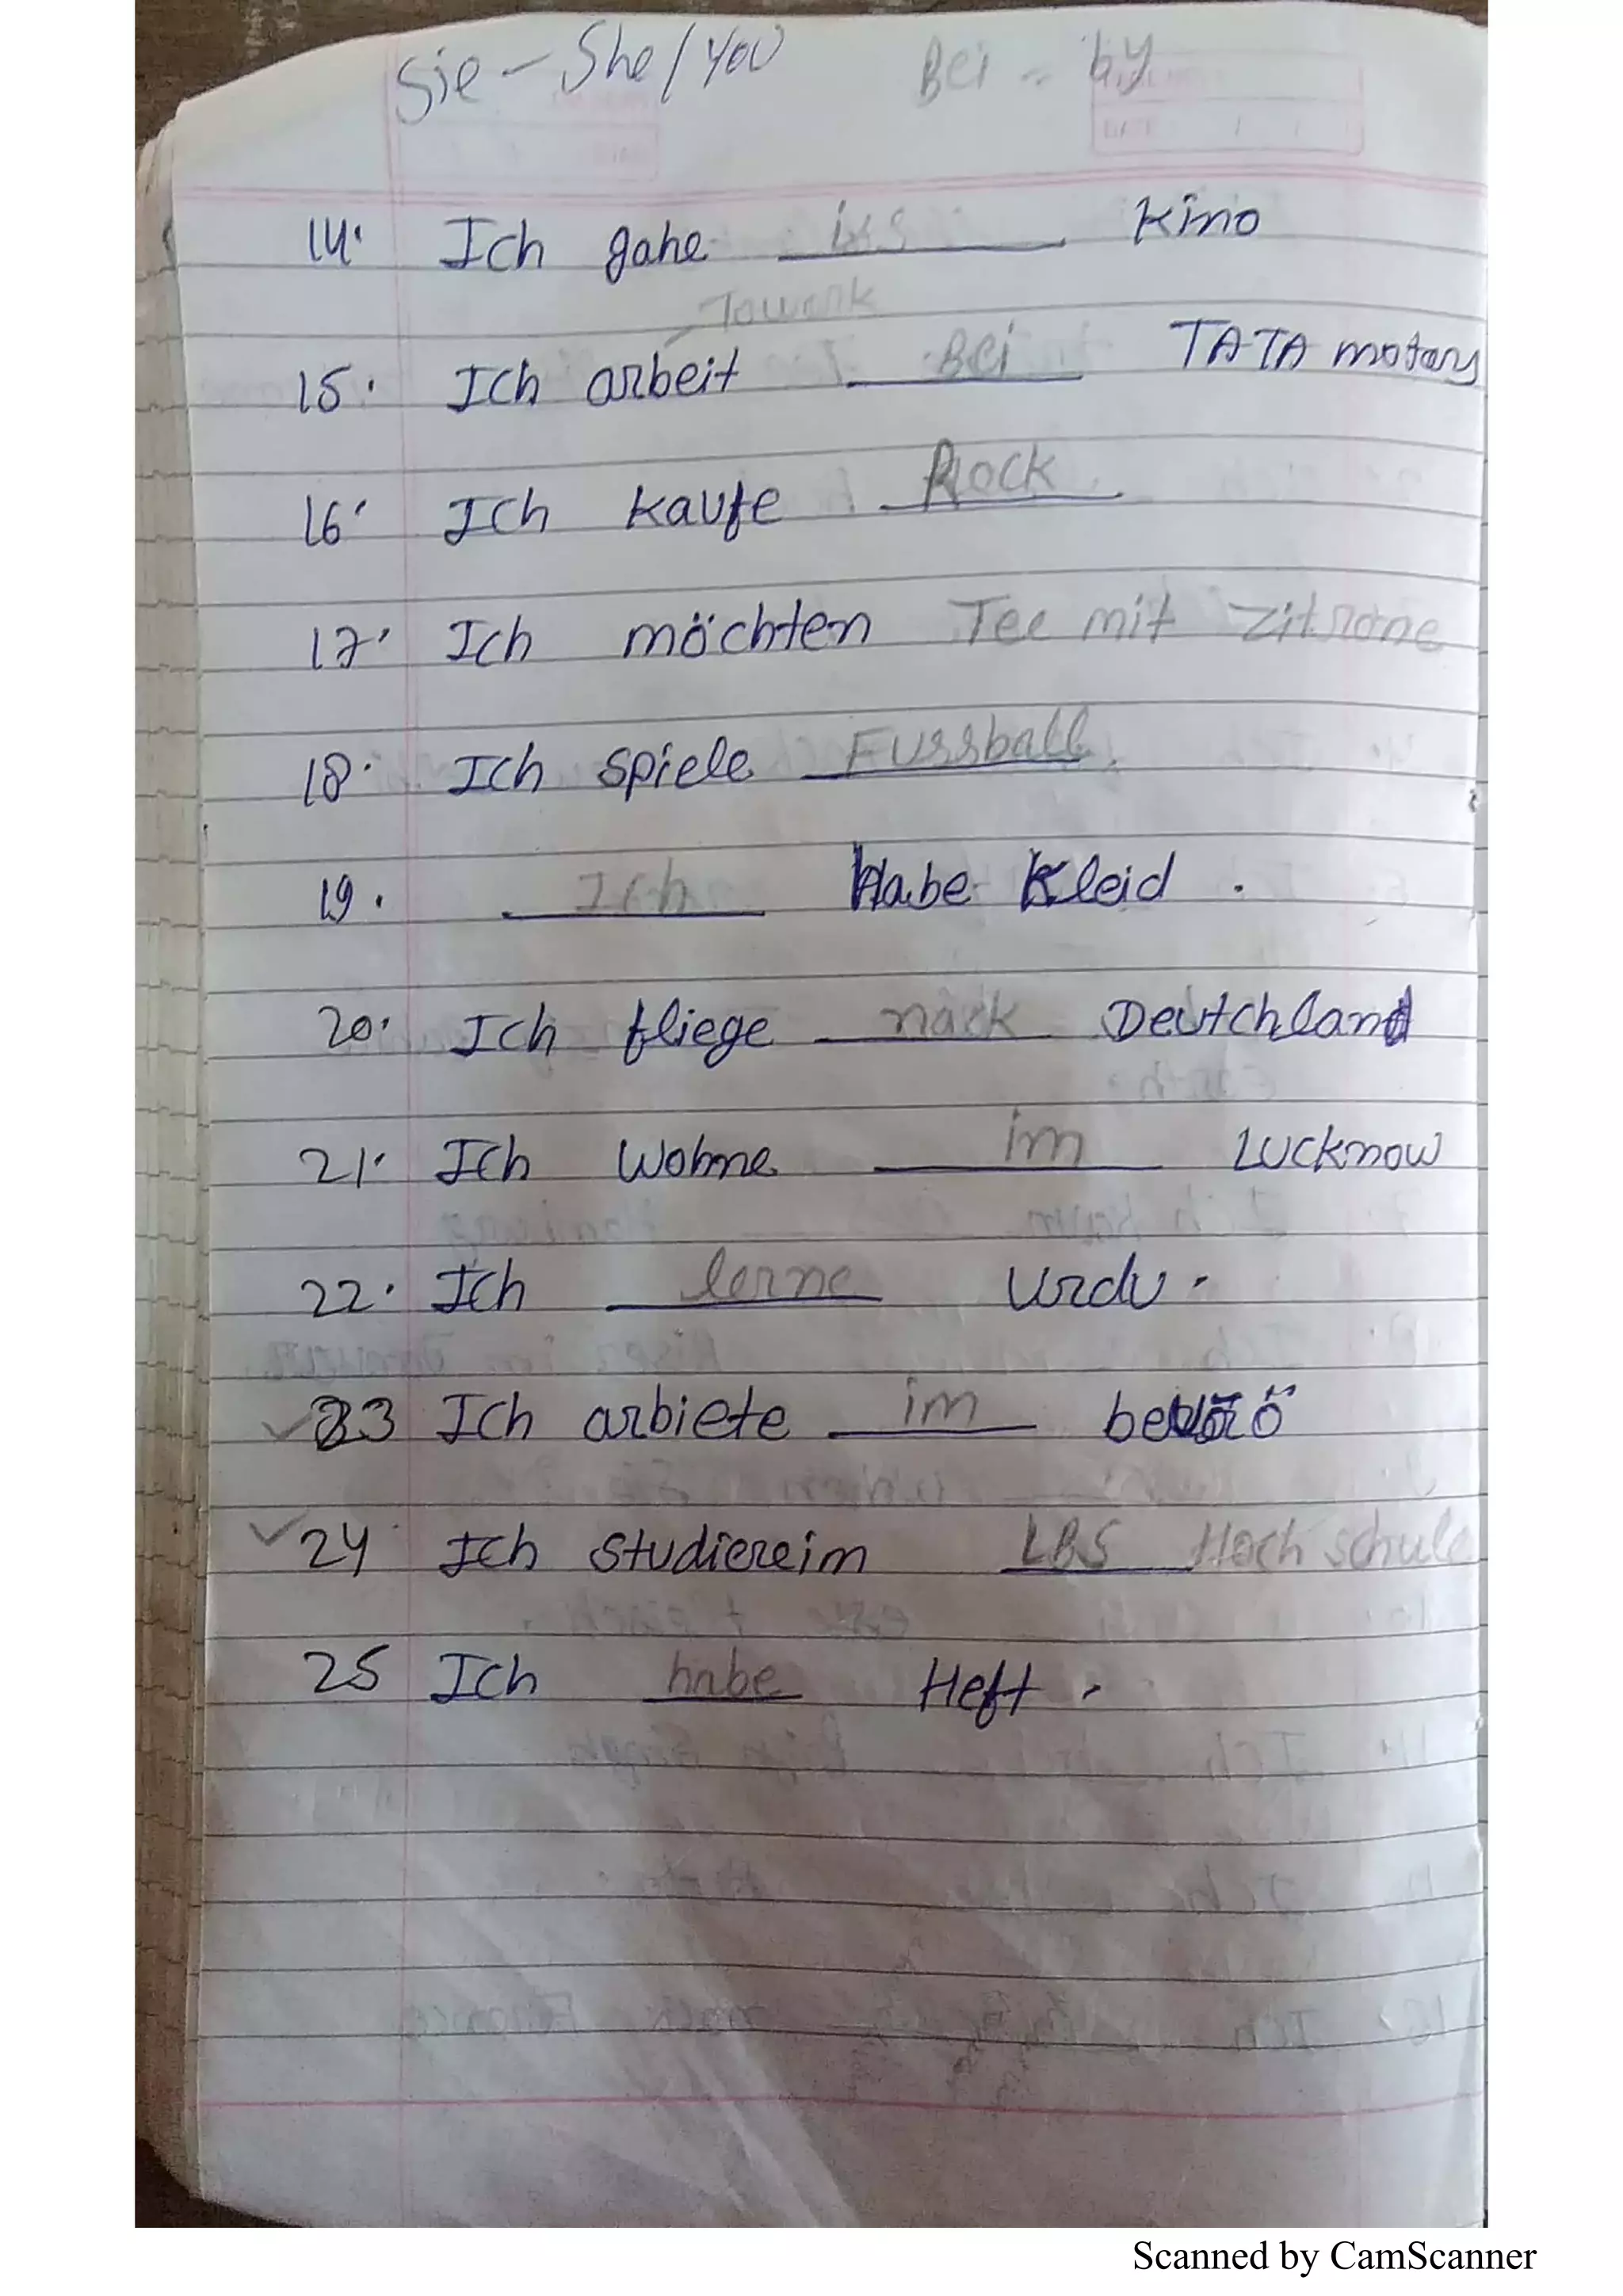 Sie - She / You Bei = by
14. Ich gahe ins Kino
Towork
15. Ich arbeit Bei TATA motors
16. Ich kaufe Rock
17. Ich möchten Tee mit Zitrone
18. Ich spiele Fussball.
19. Ich Habe Kleid .
20. Ich fliege nack Deutchland
21. Ich Wohne im Lucknow
22. Ich lerne Urdu .
23 Ich arbiete im
24 Ich studiereim LBS Hochschule
25 Ich habe Heft .
Scanned by CamScanner